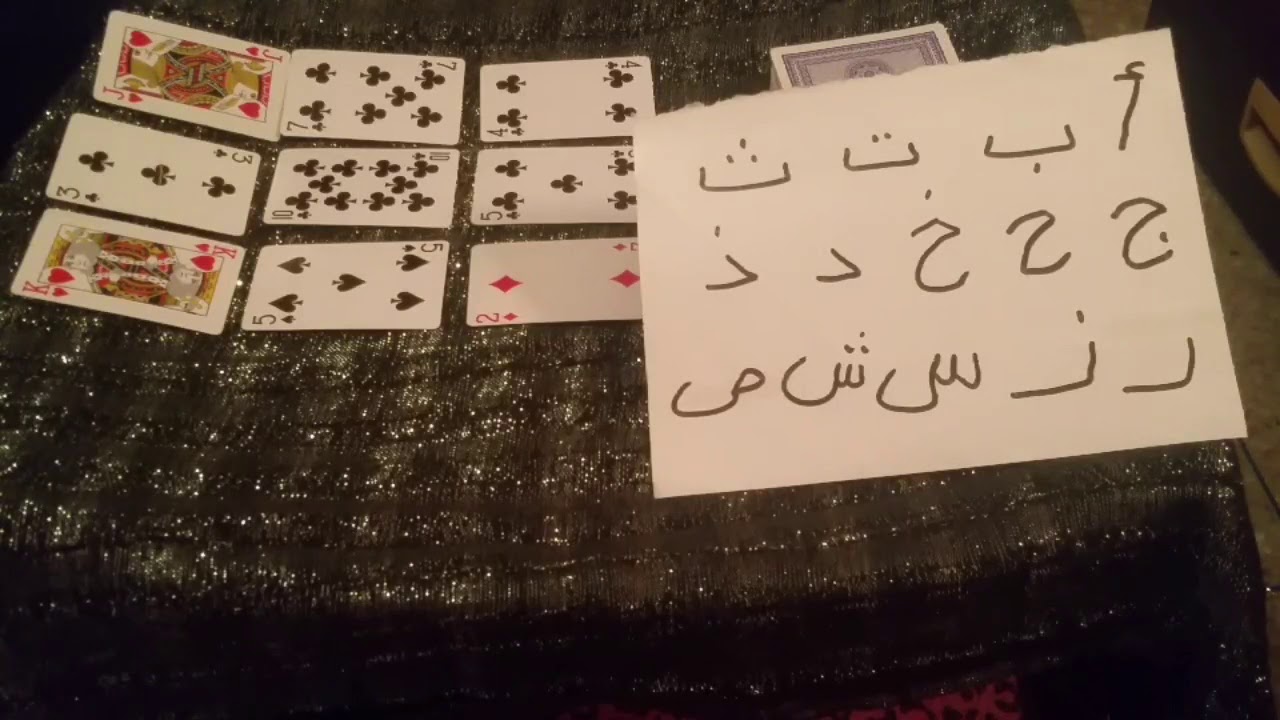 J J 7 7 4 4
3 3 10 10 5
K K 5 5 2
أ ب ت ث
ج ح خ د ذ
ر ز س ش ص